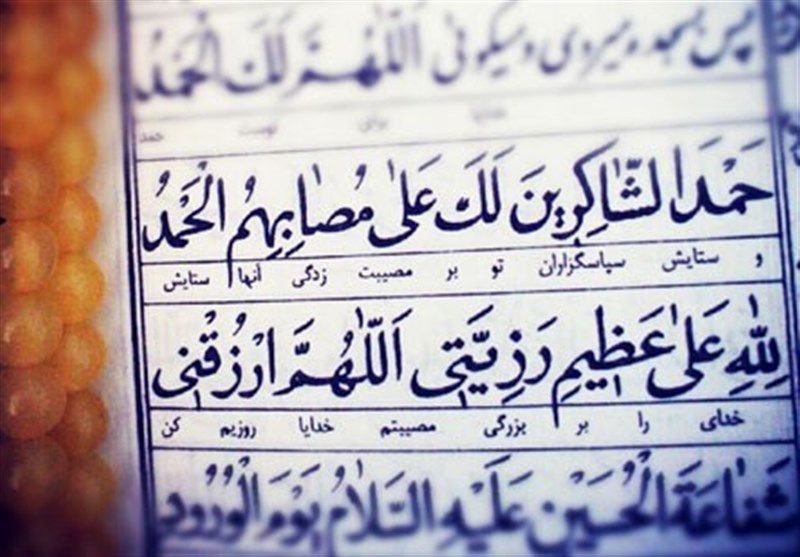 پس بسجده میروی و میگوئی اَللّٰهُمَّ لَكَ الْحَمْدُ
حَمْدَ الشّٰاكِرِينَ لَكَ عَلىٰ مُصٰابِهِمُ الْحَمْدُ
و ستایش سپاسگزاران تو بر مصیبت زدگی آنها ستایش
لِلّٰهِ عَلىٰ عَظِيمِ رَزِيَّتِى اَللّٰهُمَّ ارْزُقْنِى
خدای را بر بزرگی مصیبتم خدایا روزیم کن
شَفٰاعَةَ الْحُسَيْنِ عَلَيْهِ السَّلٰامُ يَوْمَ الْوُرُودِ